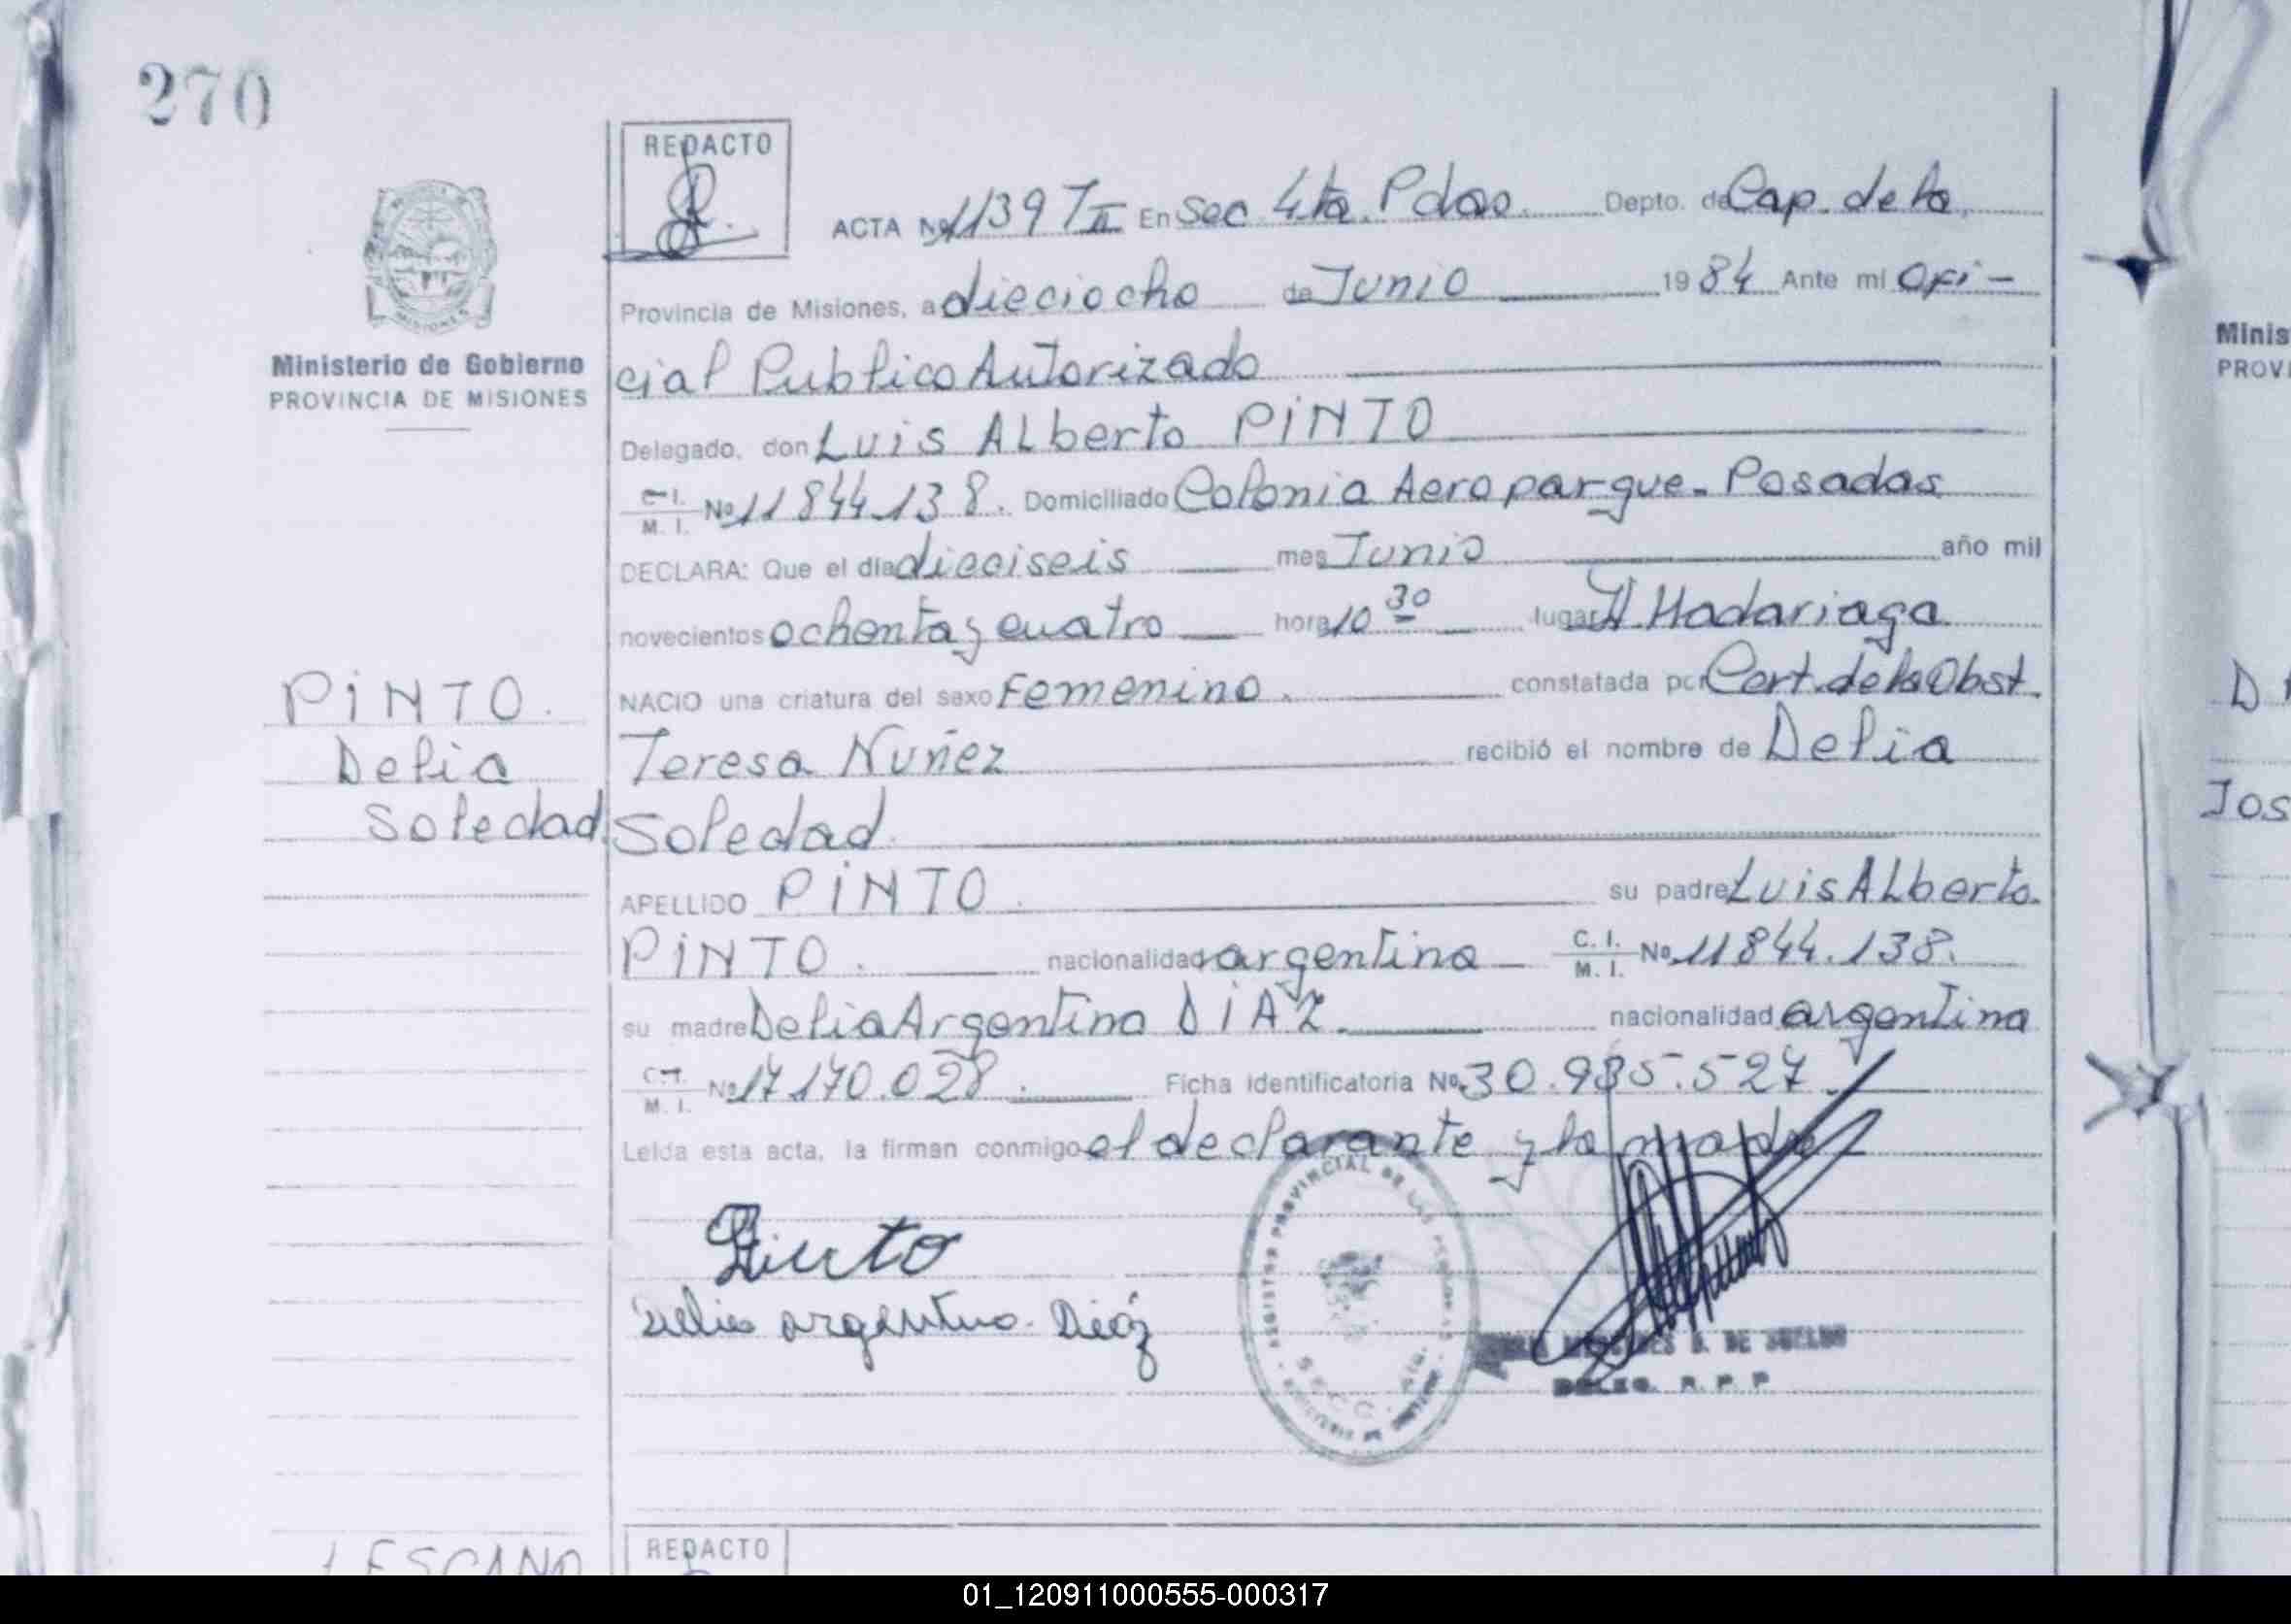 270
REDACTO
ACTA Nº 1139 TII En Sec. 4ta. Pdas. Depto. de Cap. de la
Provincia de Misiones, a dieciocho de Junio 1984 Ante mi Ofi-
cial Publico Autorizado
Delegado, don Luis ALberto PINTO
C. I. M. I. Nº 11844.138. Domiciliado Colonia Aeroparque. Posadas
DECLARA: Que el dia dieciseis mes Junio año mil
novecientos ochenta y cuatro hora 10 30 lugar H. Madariaga
NACIO una criatura del sexo Femenino. constatada por Cert. de la Obst.
Teresa Nuñez recibió el nombre de Delia
Soledad.
APELLIDO PINTO. su padre Luis ALberto.
PINTO. nacionalidad argentina C. I. M. I. Nº 11844.138.
su madre Delia Argentina DIAZ. nacionalidad argentina
C. I. M. I. Nº 17170.028. Ficha identificatoria Nº 30.985.527.
Leida esta acta, la firman conmigo el declarante y la madre
Pinto
Delia argentina. Diaz
REGISTRO PROVINCIAL DE LAS PERSONAS
DE SUELDO
DELEG. R. P. P
MISIONES
Ministerio de Gobierno
PROVINCIA DE MISIONES
PINTO.
Delia
Soledad.
LESCANO
REDACTO
Minis
PROVI
Jos
01_120911000555-000317